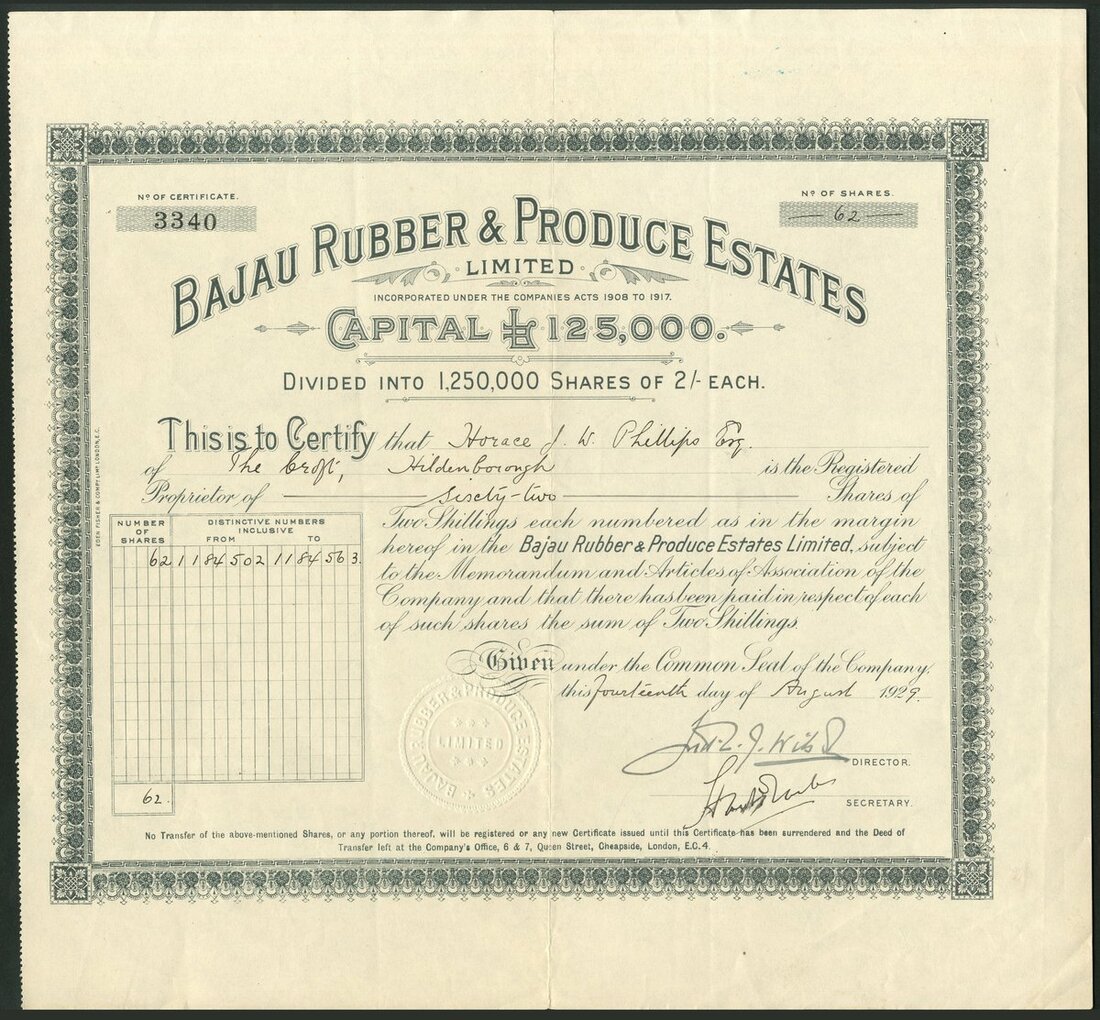 Nº OF CERTIFICATE.
3340
Nº OF SHARES.
62
BAJAU RUBBER & PRODUCE ESTATES
LIMITED
INCORPORATED UNDER THE COMPANIES ACTS 1908 TO 1917.
CAPITAL £125,000.
DIVIDED INTO 1,250,000 SHARES OF 2/- EACH.
This is to Certify that Horace J. W. Phillips Esq.
of The Croft, Hildenborough is the Registered
Proprietor of Sixty-two Shares of
Two Shillings each numbered as in the margin
hereof in the Bajau Rubber & Produce Estates Limited, subject
to the Memorandum and Articles of Association of the
Company and that there has been paid in respect of each
of such shares the sum of Two Shillings.
NUMBER OF SHARES
DISTINCTIVE NUMBERS INCLUSIVE
FROM TO
62 1184502 1184563.
62.
Given under the Common Seal of the Company,
this fourteenth day of August 1929.
BAJAU RUBBER & PRODUCE ESTATES
LIMITED
DIRECTOR.
SECRETARY.
No Transfer of the above-mentioned Shares, or any portion thereof, will be registered or any new Certificate issued until this Certificate has been surrendered and the Deed of
Transfer left at the Company's Office, 6 & 7, Queen Street, Cheapside, London, E.C.4.
EDEN FISHER & COMPY LIMD LONDON, E.C.